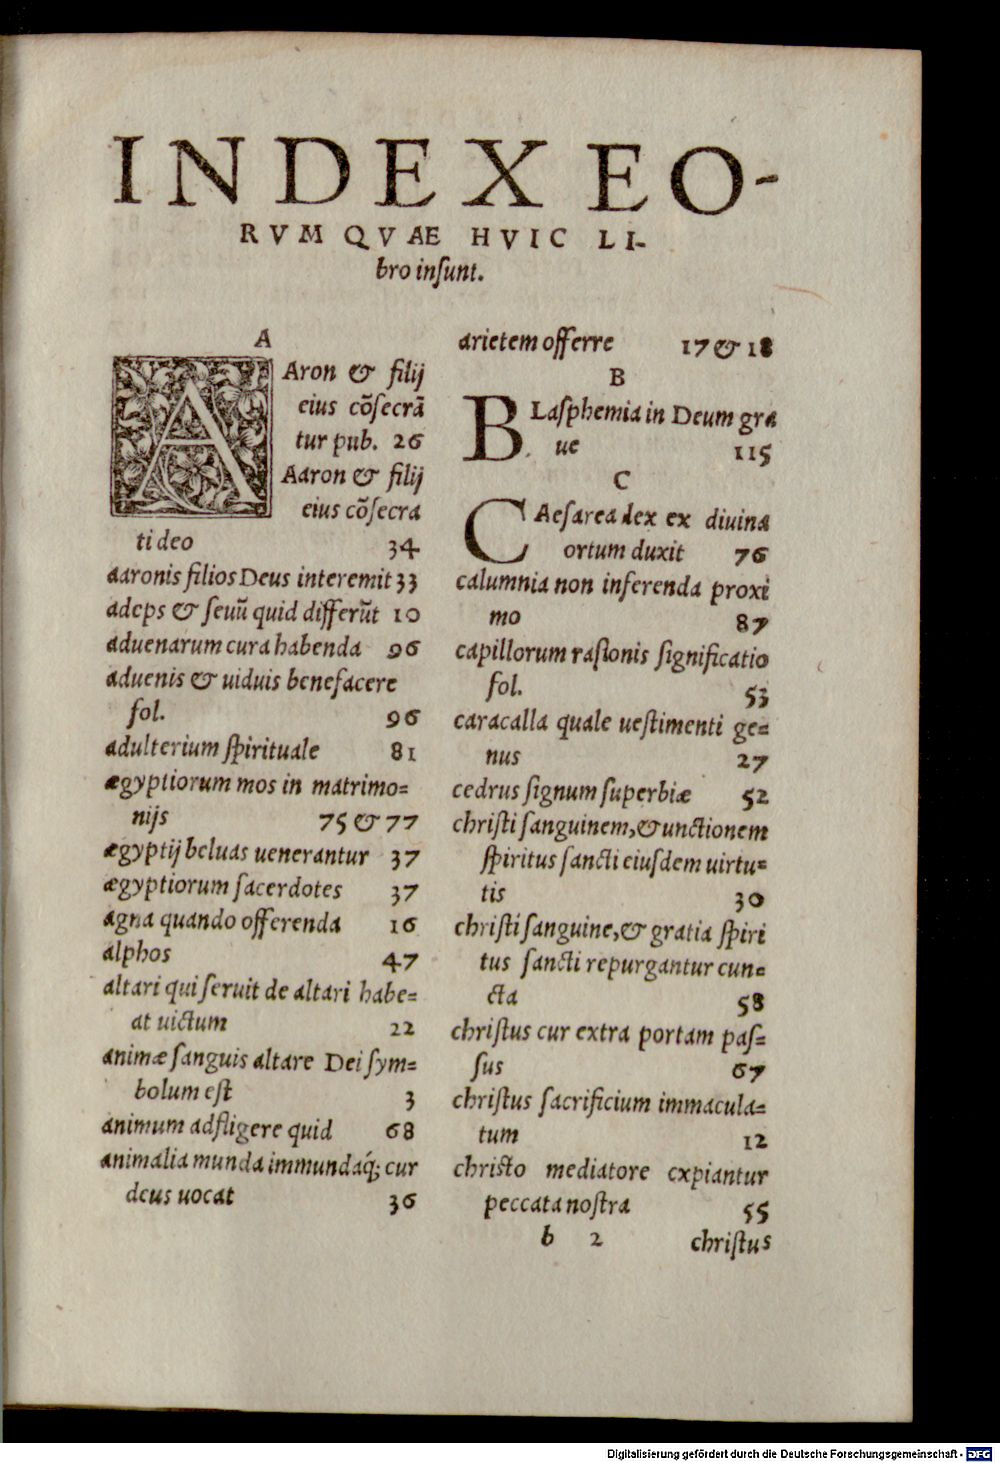 INDEX EO-
RVM QVAE HVIC LI-
bro inſunt.
A
AAron & filij
eius cõſecrã
tur pub. 26
Aaron & filij
eius cõſecra
ti deo 34
aaronis filios Deus interemit 33
adeps & ſeuũ quid differũt 10
aduenarum cura habenda 96
aduenis & uiduis benefacere
fol. 96
adulterium ſpirituale 81
ægyptiorum mos in matrimo=
nijs 75 & 77
ægyptij beluas uenerantur 37
ægyptiorum ſacerdotes 37
agna quando offerenda 16
alphos 47
altari qui ſeruit de altari habe=
at uictum 22
animæ ſanguis altare Dei ſym=
bolum eſt 3
animum adfligere quid 68
animalia munda immundaq́; cur
deus uocat 36
arietem offerre 17 & 18
B
BLaſphemia in Deum gra
ue 115
C
CAeſarea lex ex diuina
ortum duxit 76
calumnia non inferenda proxi
mo 87
capillorum raſionis ſignificatio
fol. 53
caracalla quale ueſtimenti ge=
nus 27
cedrus ſignum ſuperbiæ 52
chriſti ſanguinem, & unctionem
ſpiritus ſancti eiuſdem uirtu=
tis 30
chriſti ſanguine, & gratia ſpiri
tus ſancti repurgantur cun=
cta 58
chriſtus cur extra portam paſ=
ſus 67
chriſtus ſacrificium immacula=
tum 12
chriſto mediatore expiantur
peccata noſtra 55
b 2 chriſtus
Digitalisierung gefördert durch die Deutsche Forschungsgemeinschaft - DFG